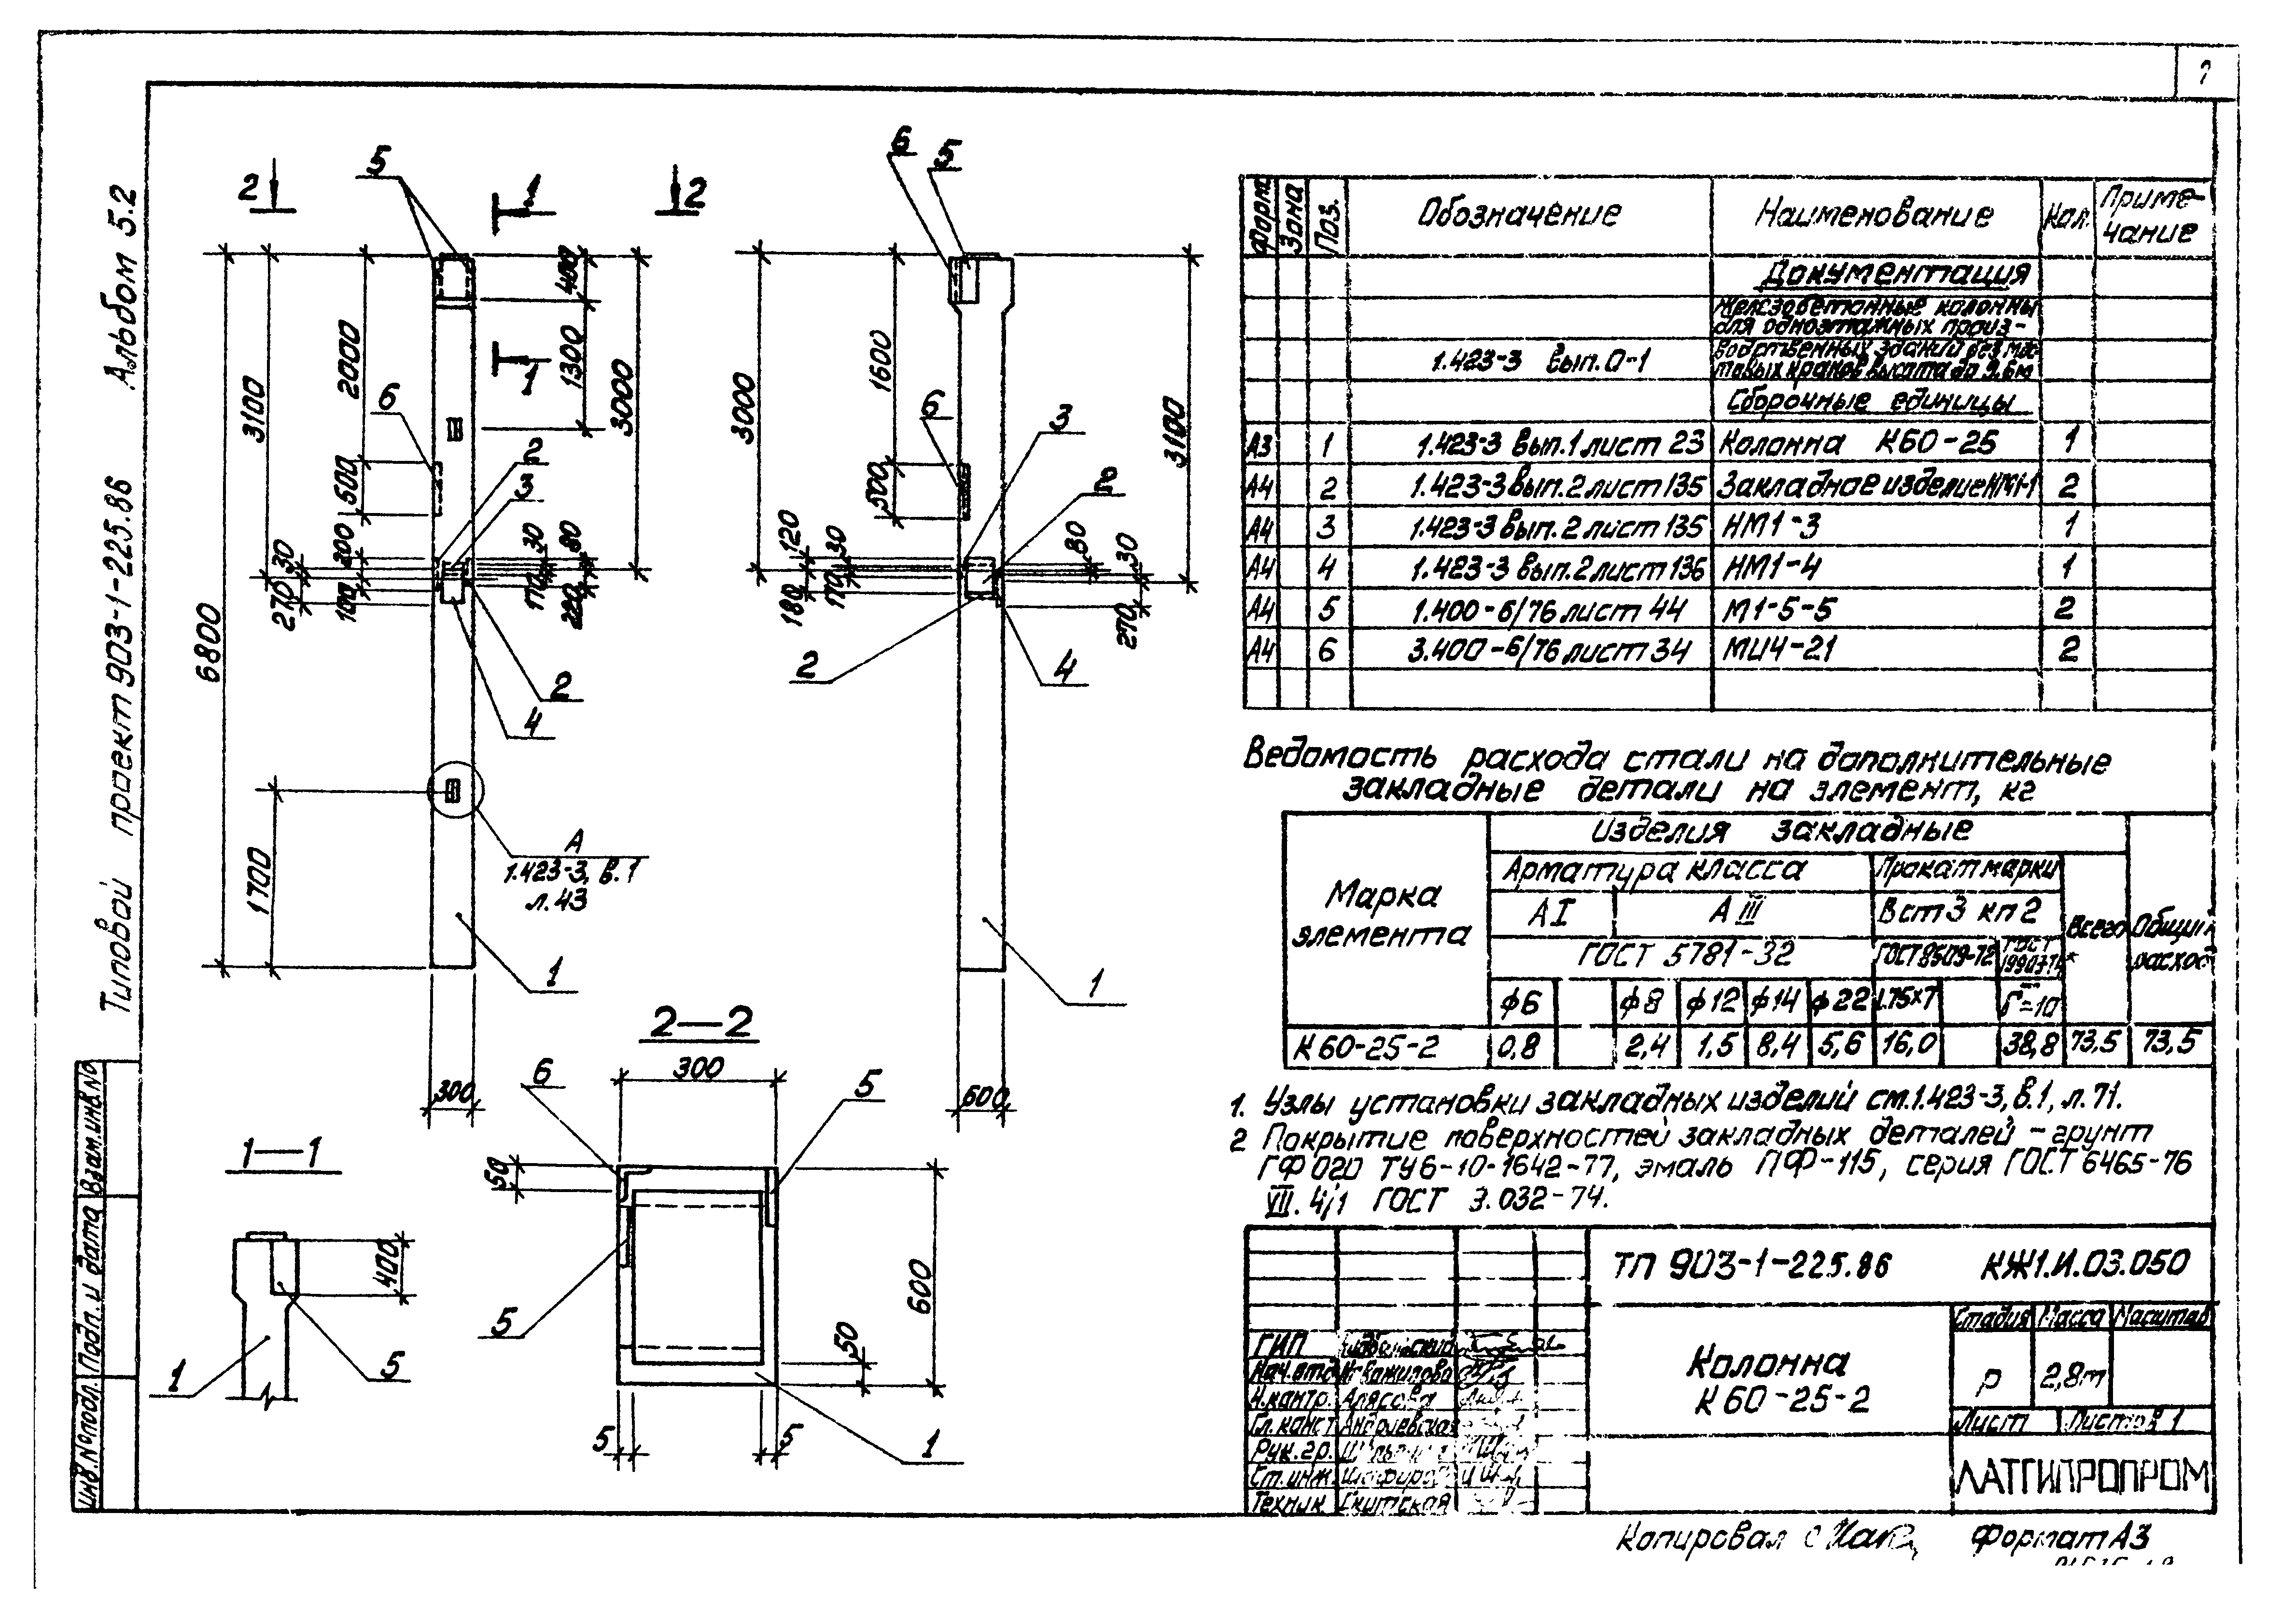 Типовой проект 903-1-225.86 Альбом 5.2
Взам.инв.№
Подп. и дата
Инв.№подл.
2 2
5 1
1
6 5
6800
3100
2000
500
200
100
30
270
1700
400
1300
3000
30
80
170
220
6
2
3
2
4
А
1.423-3, в.1
л.43
1
300
3000
1600
500
120
30
180
170
3100
80
30
270
6
3
2
2
4
1
600
1—1
400
1
5
2—2
300
6
5
50
600
5
50
5
5
1
Форм. Зона Поз. Обозначение Наименование Кол. Приме-
чание
Документация
Железобетонные колонны
для одноэтажных произ-
1.423-3 вып.0-1 водственных зданий без мос-
товых кранов высота до 9.6м
Сборочные единицы
А3 1 1.423-3 вып.1 лист 23 Колонна К60-25 1
А4 2 1.423-3 вып.2 лист 135 Закладное изделие НМ1-1 2
А4 3 1.423-3 вып.2 лист 135 НМ1-3 1
А4 4 1.423-3 вып.2 лист 136 НМ1-4 1
А4 5 1.400-6/76 лист 44 М1-5-5 2
А4 6 3.400-6/76 лист 34 МЦ4-21 2
Ведомость расхода стали на дополнительные
закладные детали на элемент, кг
Марка
элемента
Изделия закладные
Арматура класса Прокат марки
АI АIII Вст3 кп2
Всего Общий
расход
ГОСТ 5781-32 ГОСТ8509-72 ГОСТ
ф6 ф8 ф12 ф14 ф22 L75×7 δ=10
К60-25-2 0,8 2,4 1,5 8,4 5,6 16,0 38,8 73,5 73,5
1. Узлы установки закладных изделий см.1.423-3, в.1, л.71.
2 Покрытие поверхностей закладных деталей - грунт
ГФ 020 ТУ6-10-1642-77, эмаль ПФ-115, серия ГОСТ 6465-76
VII. 4/1 ГОСТ 9.032-74.
ТП 903-1-225.86 КЖ1.И.03.050
Колонна
К60-25-2
Стадия Масса Масштаб
р 2,8т
Лист Листов 1
ЛАТГИПРОПРОМ
ГИП
Нач.отд.
Н.контр. Алясова
Гл.конст. Андриевская
Рук.гр.
Ст.инж.
Техник Скитская
Копировал Формат А3